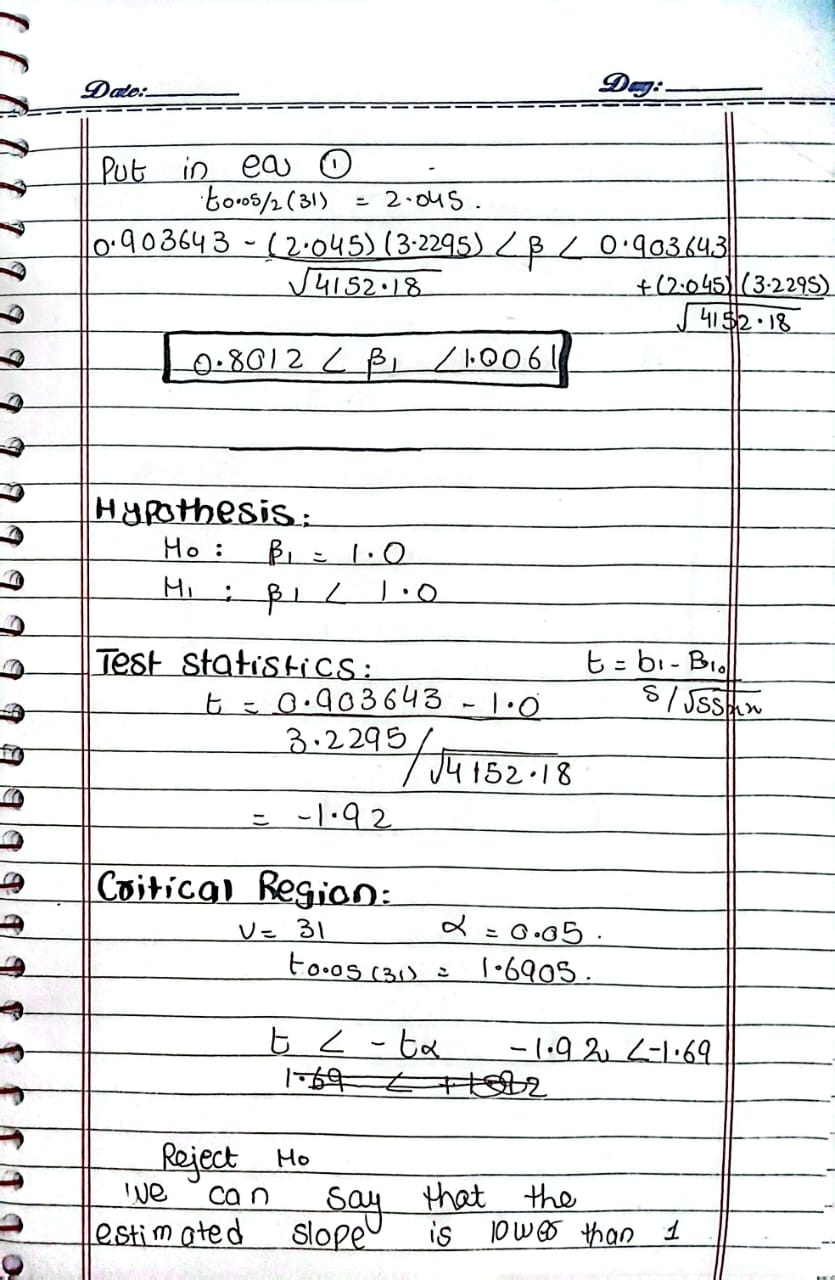 Date: Day:
Put in eq ①
t0.05/2 (31) = 2.045.
0.903643 - (2.045)(3.2295) < β < 0.903643
√4152.18 +(2.045)(3.2295)
√4152.18
0.8012 < β1 < 1.0061
Hypothesis:
H0 : β1 = 1.0
H1 : β1 < 1.0
Test statistics: t = b1 - B10
t = 0.903643 - 1.0 S/√SSxx
3.2295/√4152.18
= -1.92
Critical Region:
V = 31 α = 0.05.
t0.05 (31) = 1.6905.
t < - tα -1.92 < -1.69
Reject H0
We can say that the
estimated slope is lower than 1